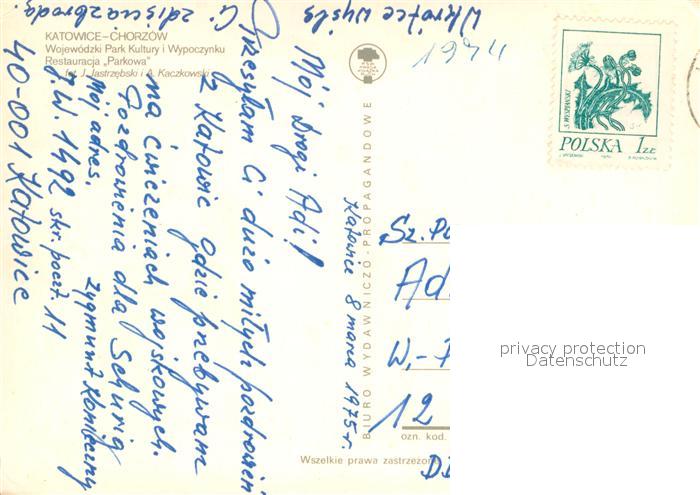 KATOWICE-CHORZÓW
Wojewódzki Park Kultury i Wypoczynku
Restauracja „Parkowa"
fot. J. Jastrzębski i A. Kaczkowski
Katowice 8 marca 1975 r.
Mój Drogi Adi!
Przesyłam Ci dużo miłych pozdrowień
z Katowic gdzie przebywam
na ćwiczeniach wojskowych.
Pozdrowienia dla Schurig
Zygmunt Konieczny
Mój adres.
J.W. 1492 skr. poczt. 11
40-001 Katowice
Wkrótce wyślę
Ci zdjęcia
1974
BIURO WYDAWNICZO-PROPAGANDOWE
S. WYSPIAŃSKI
POLSKA 1 ZŁ
Sz. Pa
Ad
W,-
12
ozn. kod.
Wszelkie prawa zastrzeżo
privacy protection
Datenschutz